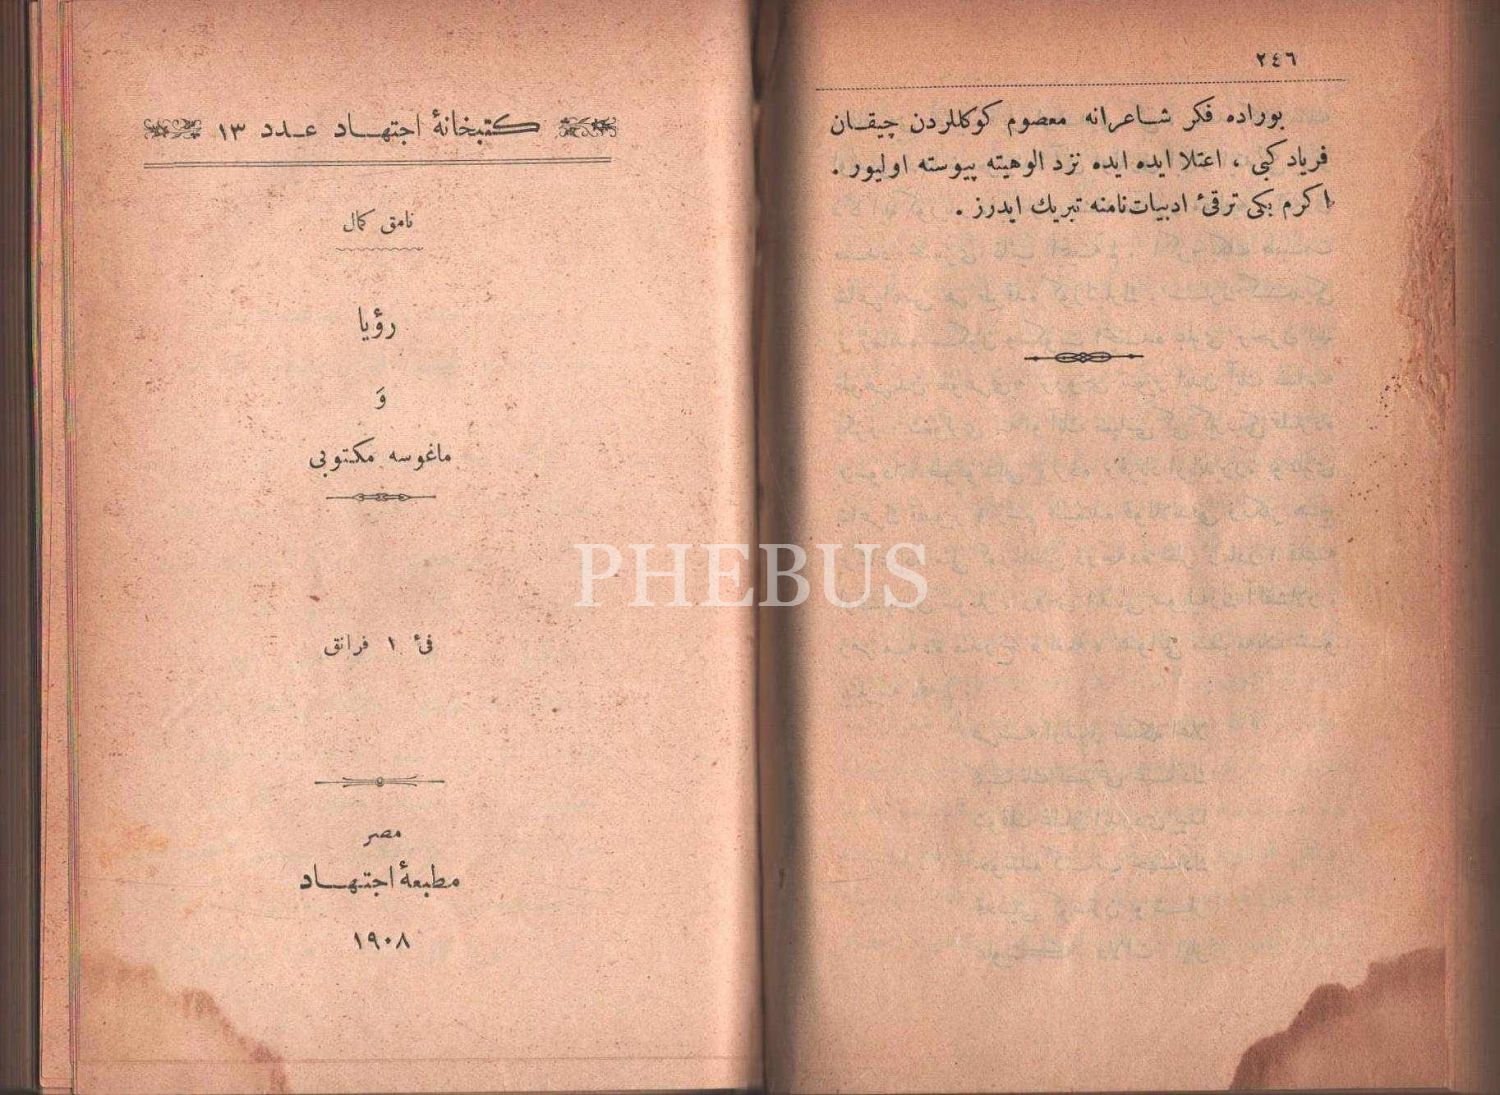 ٢٤٦
بوراده فكر شاعرانه معصوم كوكللردن چيقان
فرياد كبى ، اعتلا ايده ايده نزد الوهيته پيوسته اوليور .
اكرم بكى ترقئ ادبيات نامنه تبريك ايدرز .
كتبخانهٔ اجتهاد عدد ١٣
نامق كمال
رؤيا
وَ
ماغوسه مكتوبى
فئ ١ فرانق
مصر
مطبعهٔ اجتهاد
١٩٠٨
PHEBUS